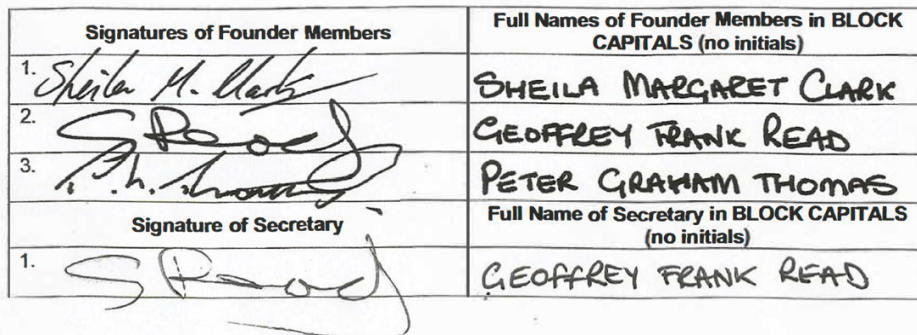 Signatures of Founder Members
Full Names of Founder Members in BLOCK
CAPITALS (no initials)
1. Sheila M. Clark
SHEILA MARGARET CLARK
2. G Read
GEOFFREY FRANK READ
3.
PETER GRAHAM THOMAS
Signature of Secretary
Full Name of Secretary in BLOCK CAPITALS
(no initials)
1. G Read
GEOFFREY FRANK READ